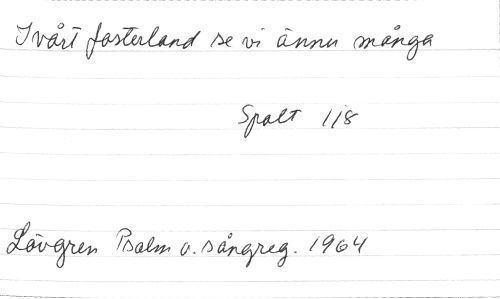 I vårt fosterland se vi ännu många
Spalt 118
Lövgren Psalm o. sångreg. 1964